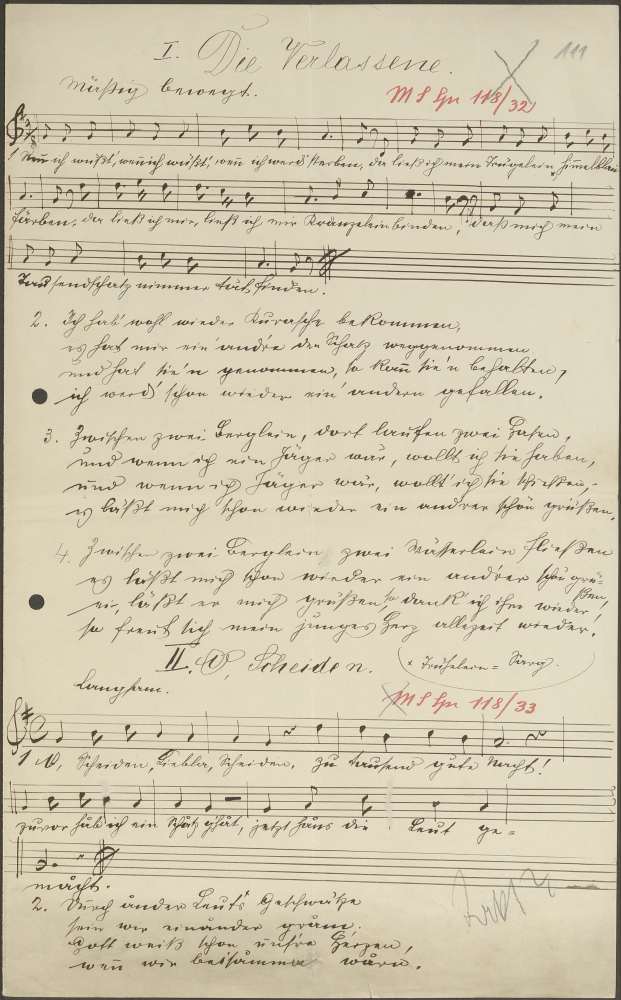 I. Die Verlassene.
111
Mäßig bewegt.
M S Hn 118/32
1 Wenn ich wüßt', wenn ich wüßt', wenn ich werd' sterben, da ließ ich mein Truhelein himmelblau
färben, da ließ ich mir, ließ ich mir Kränzelein binden, daß mich mein
Tausendschatz nimmer tät finden.
2. Ich hab' wohl wieder Kurasche bekommen,
es hat mir ein' andre den Schatz weggenommen
und hat sie'n genommen, so kann sie'n behalten,
ich werd' schon wieder ein' andern gefallen.
3. Zwischen zwei Berglein, dort laufen zwei Hasen,
und wenn ich ein Jäger wär, wollt ich sie haben,
und wenn ich Jäger wär, wollt' ich sie schießen,
es läßt mich schon wieder ein andrer schön grüßen.
4. Zwischen zwei Berglein zwei Wässerlein fließen
es läßt mich schon wieder ein andrer schön grü-
ßen,
ei, läßt er mich grüßen, so dank ich ihm wieder,
so freut sich mein junges Herz allezeit wieder.
II. O, Scheiden.
x Truhelein = Sarg.
Langsam.
M S Hn 118/33
1 O, Scheiden, Liebla, Scheiden, zu tausend gute Nacht!
zuvor hab ich ein Schatz ghåt, jetzt håns die Leut ge=
måcht.
2. Durch ånder Leut's Geschwätze
sein wir einånder gråm.
Gott weiß schon unsre Herzen,
wenn wir beisåmma wårn.